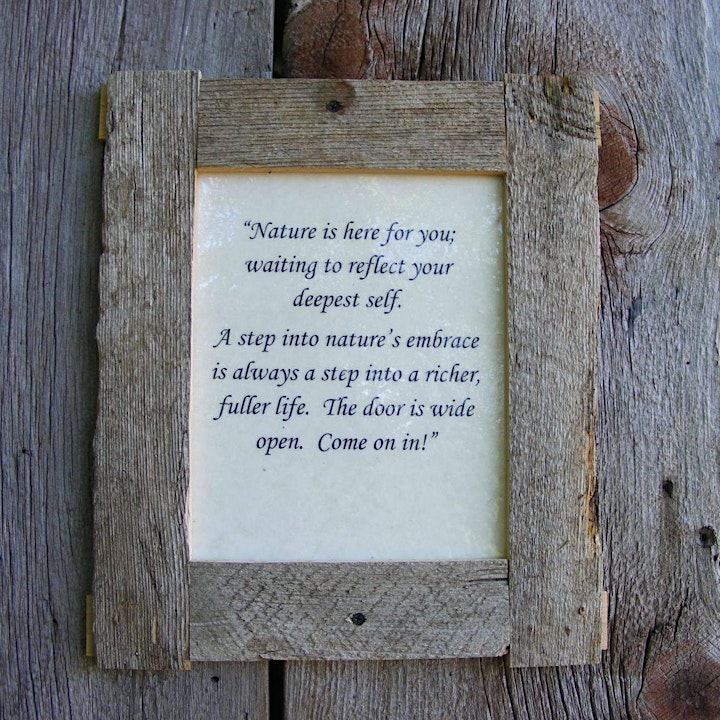 “Nature is here for you;
waiting to reflect your
deepest self.
A step into nature’s embrace
is always a step into a richer,
fuller life.  The door is wide
open.  Come on in!”